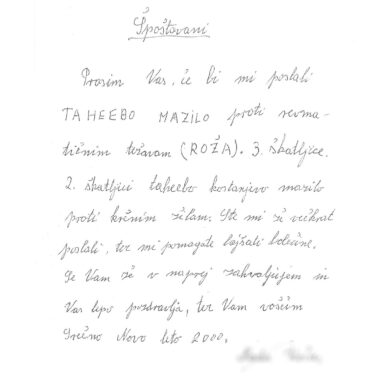 Špoštavani
Prosim Vas, če bi mi poslali
TAHEEBO MAZILO proti revma-
tičnim težavam (ROŽA). 3. škatljice.
2. škatljici taheebo kostanjevo mazilo
proti krčnim žilam. Ste mi že večkrat
poslali, ter mi pomagate lajšati bolečine.
Se Vam še v naprej zahvaljujem in
Vas lepo pozdravlja, ter Vam voščim
Srečno Novo leto 2000.